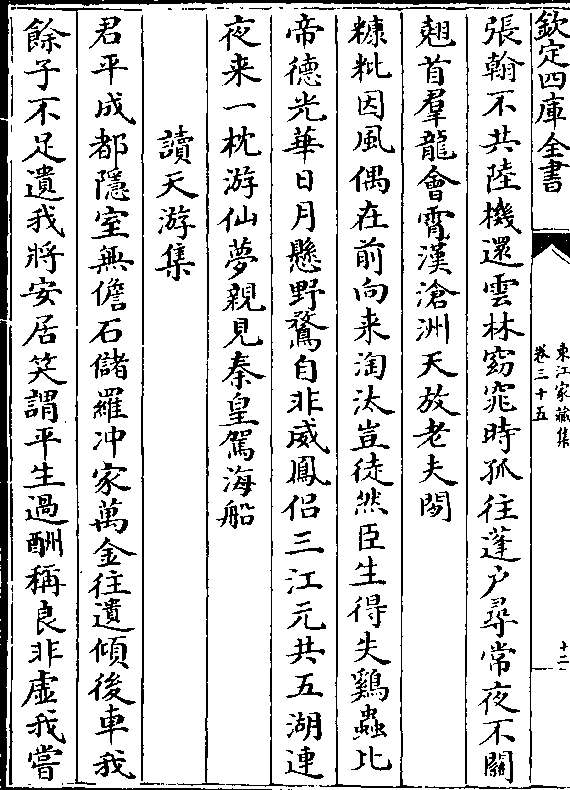 欽定四庫全書
東江家藏集
卷三十五
十二
張翰不共陸機還雲林窈窕時孤往蓬户尋常夜不關
翹首羣龍會霄漢滄洲天放老夫閒
糠粃因風偶在前向来淘汰豈徒然臣生得失鷄蟲比
帝德光華日月懸野鶩自非威鳳侣三江元共五湖連
夜来一枕游仙夢親見秦皇駕海船
讀天游集
君平成都隱室無儋石儲羅冲家萬金往遺傾後車我
餘子不足遺我將安居笑謂平生過酬稱良非虚我嘗